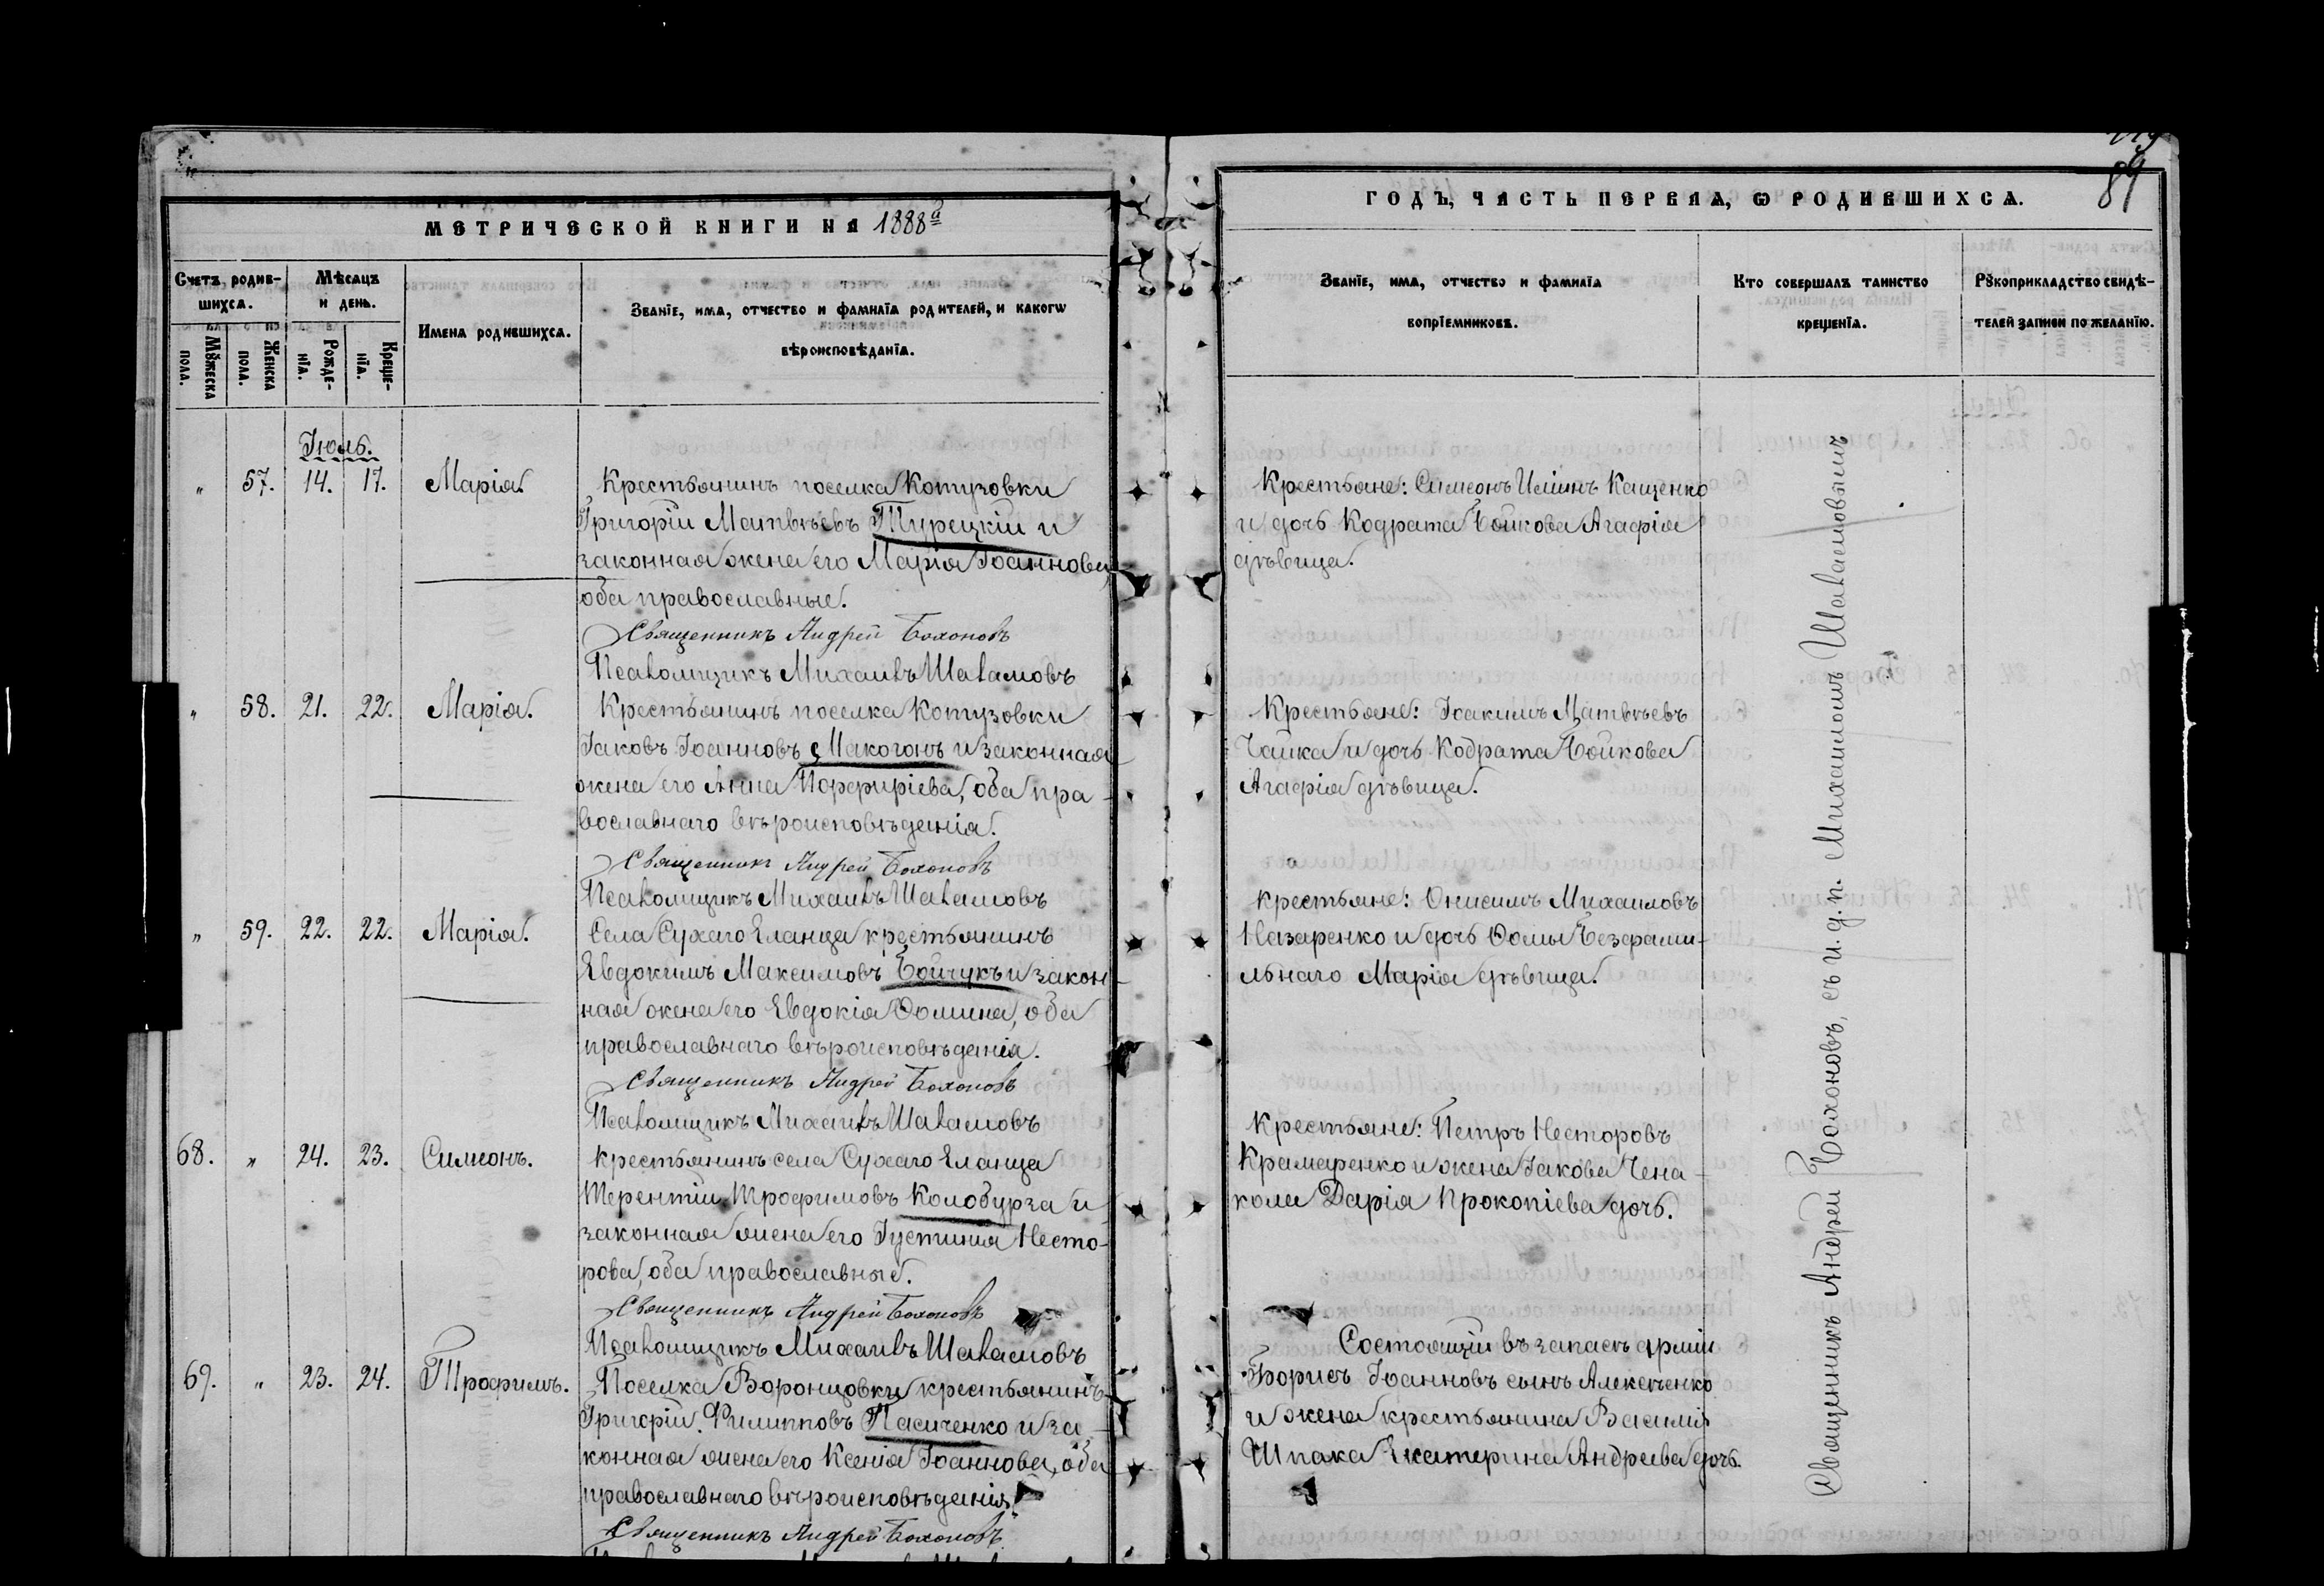 89
МЕТРИЧЕСКОЙ КНИГИ НА 1888й
ГОДЪ, ЧАСТЬ ПЕРВАЯ, Ѡ РОДИВШИХСЯ.
Счетъ родив-
шихся.
Мѣсяцъ
и день.
Имена родившихся.
Званїе, имя, отчество и фамилїя родителей, и какогѡ
вѣроисповѣданїя.
Мꙋжеска
пола.
Женска
пола.
Рожде-
нїя.
Креще-
нїя.
Званїе, имя, отчество и фамилїя
воспрїемниковъ.
Кто совершалъ таинство
крещенїя.
Рꙋкоприкладство свидѣ-
телей записи по желанїю.
Іюль.
" 57. 14. 17. Марія.
Крестьянинъ поселка Котузовки
Григорій Матвѣевъ Турецкій и
законная жена его Марія Іоаннова,
оба православные.
Священникъ Андрей Болоновъ
Псаломщикъ Михаилъ Шаламовъ
Крестьяне: Симеонъ Илiинъ Кащенко
и дочь Кодрата Бойкова Агафія
дѣвица.
" 58. 21. 22. Марія.
Крестьянинъ поселка Котузовки
Іаковъ Іоанновъ Макогонъ и законная
жена его Анна Порфиріева, оба пра-
вославнаго вѣроисповѣданія.
Священникъ Андрей Болоновъ
Псаломщикъ Михаилъ Шаламовъ
Крестьяне: Іоакимъ Матвѣевъ
Чайка и дочь Кодрата Бойкова
Агафія дѣвица.
" 59. 22. 22. Марія.
Села Сухаго Еланца крестьянинъ
Евдокимъ Максимовъ Бойчукъ и закон-
ная жена его Евдокія Ѳомина, оба
православнаго вѣроисповѣданія.
Священникъ Андрей Болоновъ
Псаломщикъ Михаилъ Шаламовъ
Крестьяне: Онисимъ Михаиловъ
Назаренко и дочь Ѳомы Безфами-
льнаго Марія дѣвица.
68. " 24. 23. Симеонъ.
Крестьянинъ села Сухаго Еланца
Терентій Трофимовъ Колобурза и
законная жена его Іустинія Несто-
рова, оба православные.
Священникъ Андрей Болоновъ
Псаломщикъ Михаилъ Шаламовъ
Крестьяне: Петръ Несторовъ
Крамаренко и жена Іакова Чена-
кала Дарія Прокопіева дочь.
69. " 23. 24. Трофимъ.
Поселка Воронцовки крестьянинъ
Григорій Филипповъ Пасиченко и за-
конная жена его Ксенія Іоаннова, оба
православнаго вѣроисповѣданія.
Священникъ Андрей Болоновъ
Состоящій въ запасѣ арміи
Борисъ Іоанновъ сынъ Алексѣенко
и жена крестьянина Василія
Шпака Екатерина Андреева дочь.
Священникъ Андрей Болоновъ, съ и. д. п. Михаиломъ Шаламовымъ